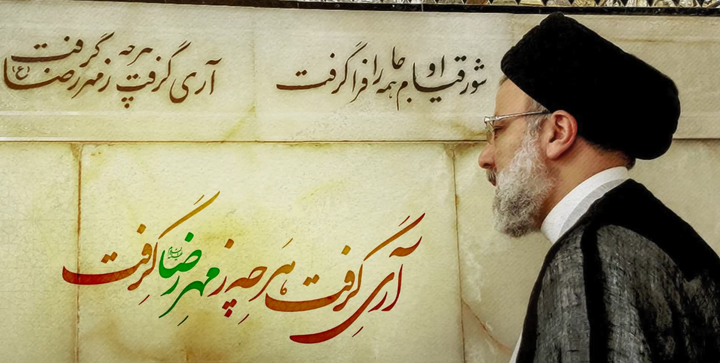 شور قیام او همه جا را فرا گرفت
آری گرفت هر چه ز مهر رضا (ع) گرفت
آری گرفت هر چه ز مهر رضا گرفت